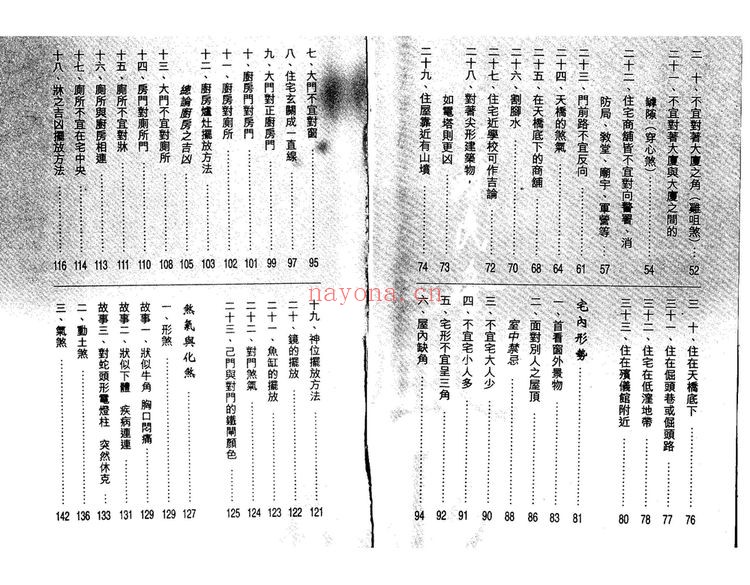 二十、不宜對著大廈之角（雞咀煞）…52
二十一、不宜對著大廈與大廈之間的
罅隙（穿心煞）…54
二十二、住宅商舖皆不宜對向警署、消
防局、教堂、廟宇、軍營等…57
二十三、門前路不宜反向…61
二十四、天橋的煞氣…64
二十五、在天橋底下的商舖…68
二十六、割腳水…70
二十七、住宅近學校可作吉論…72
二十八、對著尖形建築物，
如電塔則更凶…73
二十九、住屋靠近有山墳…74
三十、住在天橋底下…76
三十一、住在倔頭巷或倔頭路…77
三十二、住宅在低漥地帶…78
三十三、住在殯儀館附近…80
宅內形勢…81
一、首看窗外景物…83
二、面對別人之屋頂…86
室中禁忌…88
三、不宜宅大人少…90
四、不宜宅小人多…91
五、宅形不宜呈三角…92
六、屋內缺角…94
七、大門不宜對窗…95
八、住宅玄關成一直線…97
九、大門對正廚房門…99
十、廚房門對房門…101
十一、廚房對廁所…102
十二、廚房爐灶擺放方法…103
總論廚房之吉凶…105
十三、大門不宜對廁所…108
十四、房門對廁所門…110
十五、廁所不宜對牀…111
十六、廁所與廚房相連…113
十七、廁所不宜在宅中央…114
十八、牀之吉凶擺放方法…116
十九、神位擺放方法…121
二十、鏡的擺放…122
二十一、魚缸的擺放…123
二十二、對門煞氣…124
二十三、己門與對門的鐵閘顏色…125
煞氣與化煞…127
一、形煞…129
故事一、狀似牛角　胸口悶痛…129
故事二、狀似下體　疾病連連…131
故事三、對蛇頭形電燈柱　突然休克…133
二、動土煞…136
三、氣煞…142
nayona.cn